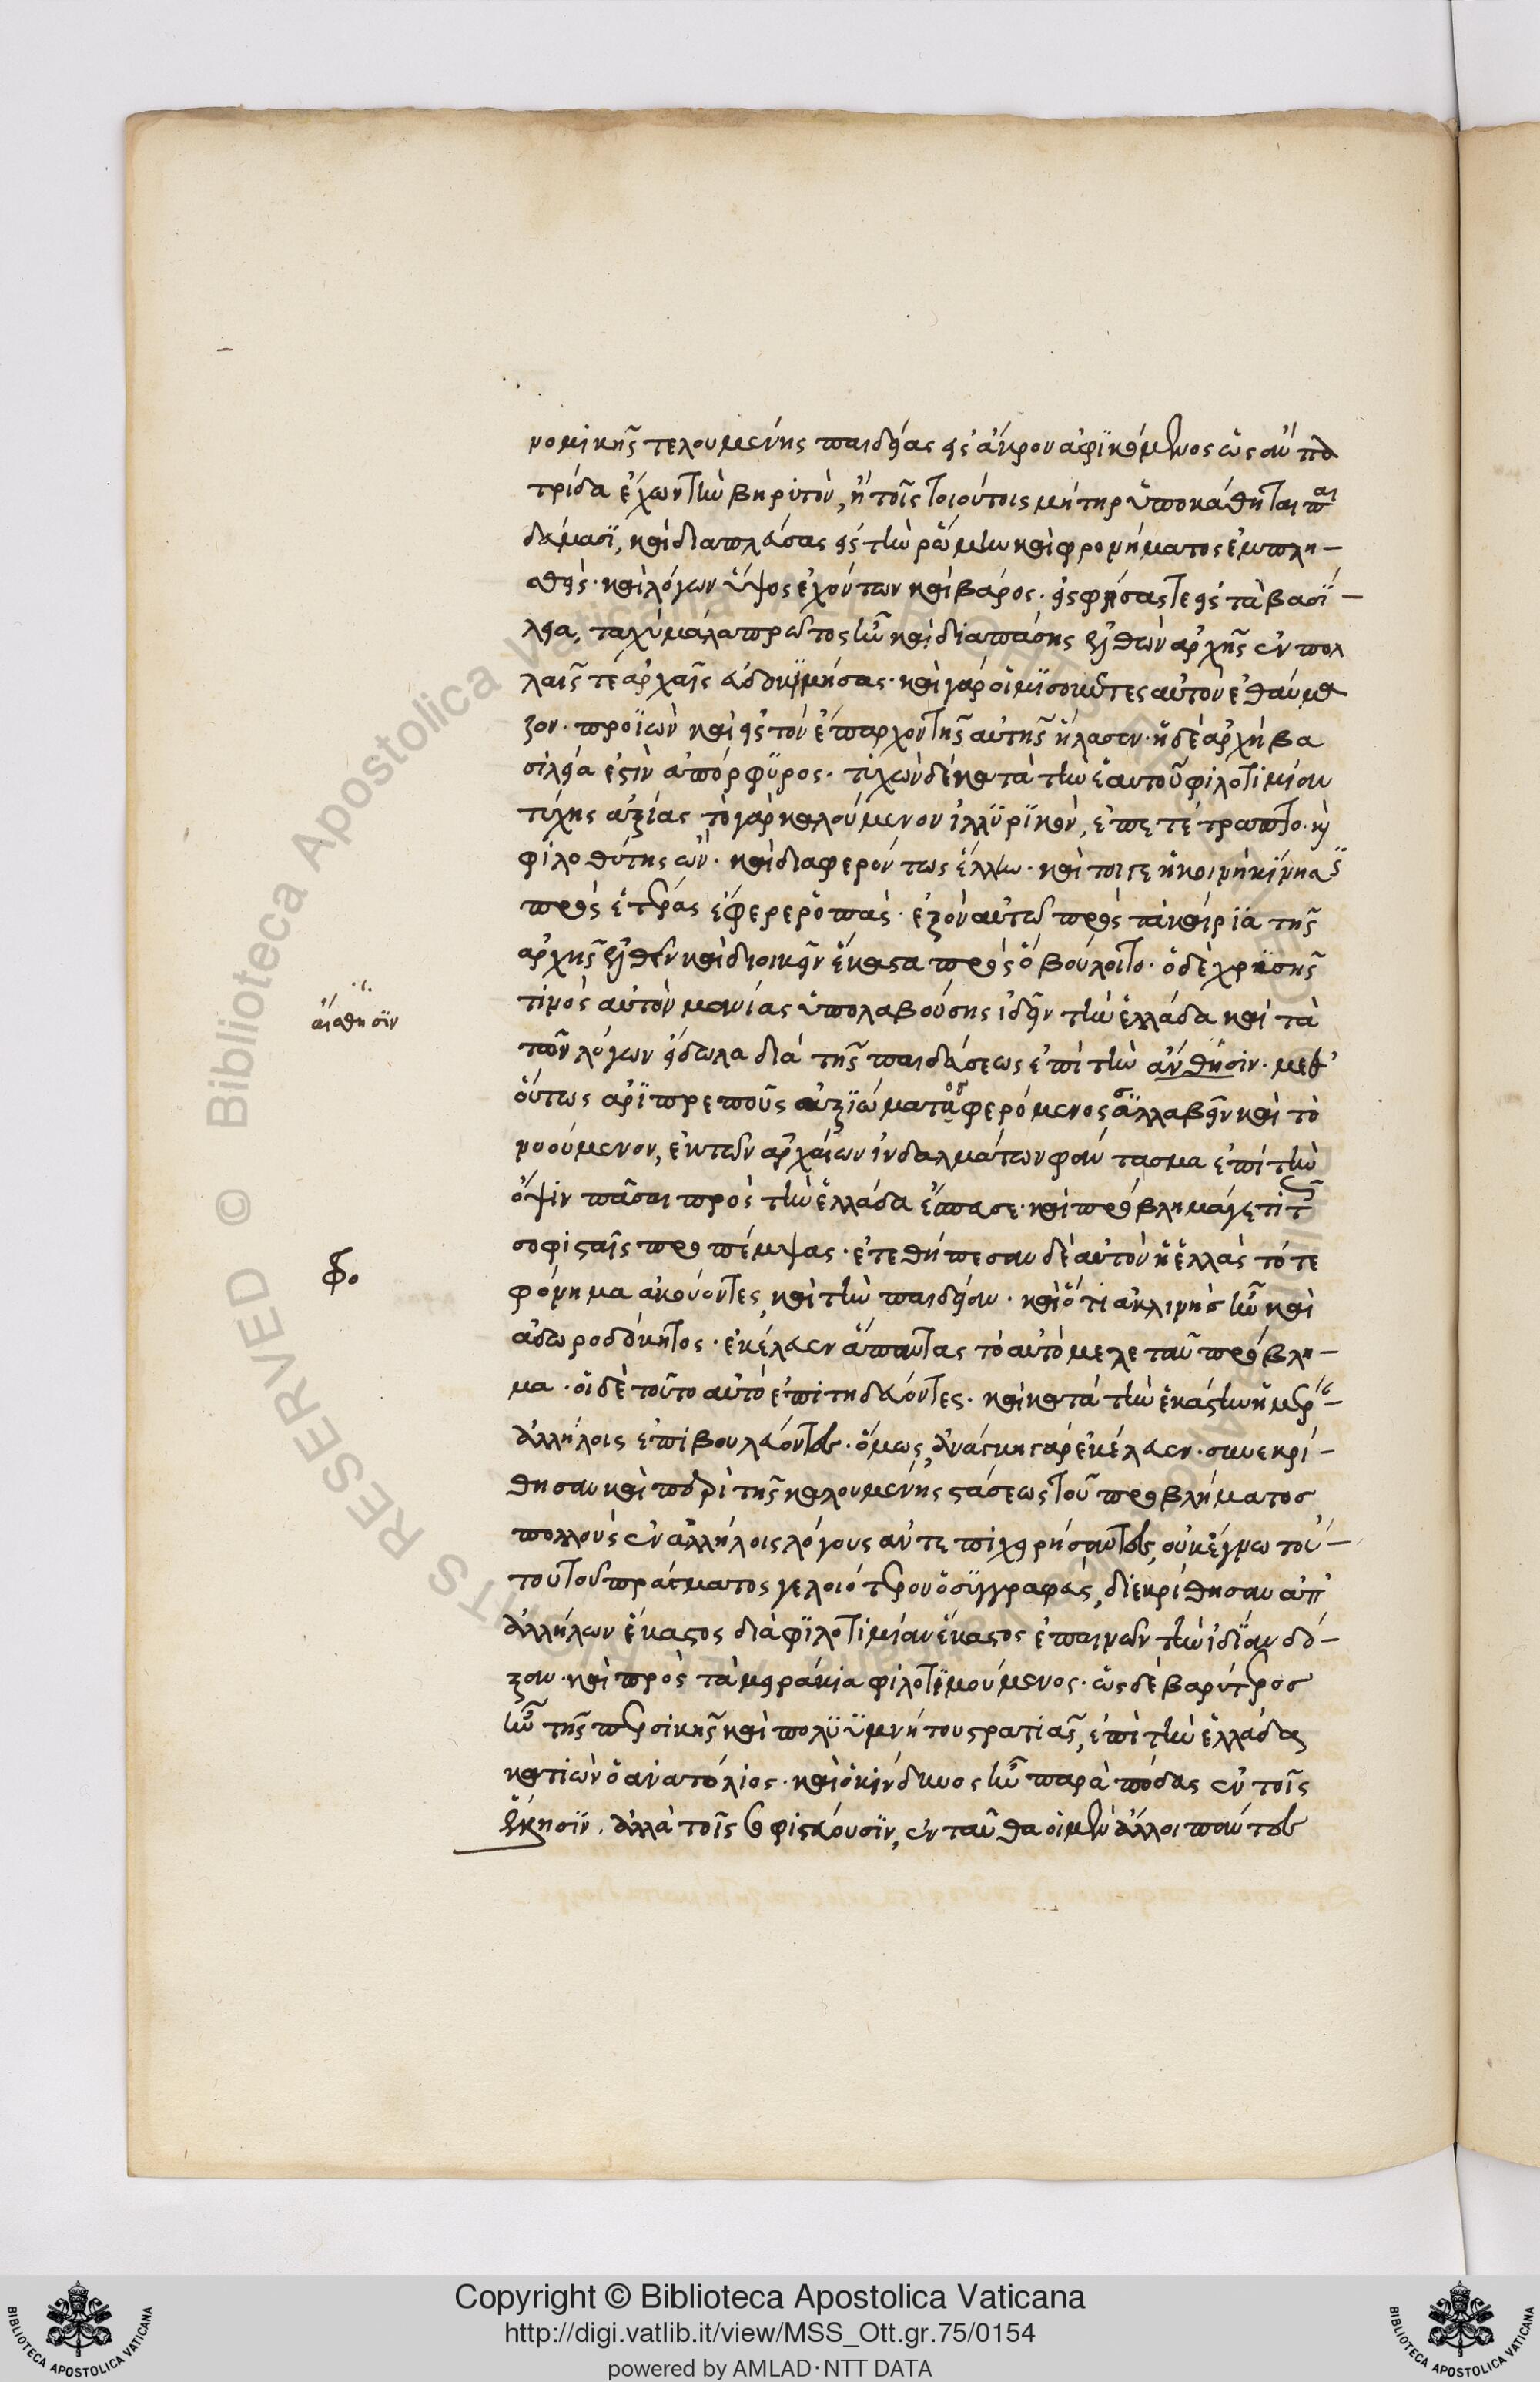 νομικῆς τελουμένης παιδείας εἰς ἄκρον ἀφικόμενος ὡς ἂν πα
τρίδα ἔχων τὴν βηρυτὸν, ἣ τοῖς τοιούτοις μήτηρ ὑποκάθηται παι
δεύμασι, καὶ διαπλεύσας εἰς τὴν ῥώμην καὶ φρονήματος ἐμπλη-
σθεὶς· καὶ λόγων ὕψος ἐχόντων καὶ βάρος· εἰσφρήσας τε εἰς τὰ βασί-
λεια, ταχὺ μάλα πρῶτος ἦν καὶ διὰ πάσης ἐλθὼν ἀρχῆς ἐν πολ
λαῖς τὲ ἀρχαῖς εὐδοκιμήσας· καὶ γὰρ οἱ μισοῦντες αὐτὸν ἐθαύμα
ζον· προϊὼν καὶ εἰς τὸν ἔπαρχον τῆς αὐτῆς ἤλασεν· ἡ δὲ ἀρχὴ βα
σιλεία ἐστὶν ἀπόρφυρος· τυχὼν δὲ κατὰ τὴν ἑαυτοῦ φιλοτιμίαν
τύχης ἀξίας τὸ γὰρ καλούμενον ἰλλυρικὸν, ἐπετέτραπτο· καὶ
φιλοθύτης ὢν· καὶ διαφερόντως ἕλλην· καὶ τοι γε ἡ κοινὴ κίνησις
πρὸς ἑτέρας ἔφερε ῥοπὰς· ἐξὸν αὐτῷ πρὸς τὰ καίρια τῆς
ἀρχῆς ἐλθεῖν καὶ διοικεῖν ἕκαστα πρὸς ὃ βούλοιτο· ὁ δὲ χρυσῆς
τινὸς αὐτὸν μανίας ὑπολαβούσης ἰδεῖν τὴν ἑλλάδα καὶ τὰ
τῶν λόγων εἴδωλα διὰ τῆς παιδεύσεως ἐπὶ τὴν ἄνθησιν· μεθ'
αἴσθησιν
οὕτως ἀριπρεποῦς ἀξιώματος φερόμενος συλλαβεῖν καὶ τὸ
νοούμενον, ἐκ τῶν ἀρχαίων ἰνδαλμάτων φάντασμα ἐπὶ τὴν
ὄψιν πᾶσαι πρὸς τὴν ἑλλάδα ἔσπασε· καὶ πρόβλημά γέ τι τοῖς
σοφισταῖς προπέμψας· ἐτεθήπεσαν δὲ αὐτὸν ἡ ἑλλὰς τό τε
φρόνημα ἀκούοντες, καὶ τὴν παιδείαν· καὶ ὅτι ἀκλινὴς ἦν καὶ
ἀδωροδόκητος· ἐκέλευεν ἅπαντας τὸ αὐτὸ μελετᾶν πρόβλη-
μα· οἱ δὲ τοῦτο αὐτὸ ἐπιτηδεύοντες· καὶ κατὰ τὴν ἑκάστην ἡμέραν-
ἀλλήλοις ἐπιβουλεύοντες· ὅμως, ἀνάγκη γὰρ ἐκέλευεν· συνεκρί-
θησαν καὶ περὶ τῆς καλουμένης στάσεως τοῦ προβλήματος
πολλοὺς ἐν ἀλλήλοις λόγους ἀντεπιχειρήσαντες, οὐκ ἔγνω τού-
του τοῦ πράγματος γελοιότερον ὁ συγγραφεὺς, διεκρίθησαν ἀπ'
ἀλλήλων ἕκαστος διὰ φιλοτιμίαν ἕκαστος ἐπαινῶν τὴν ἰδίαν δό-
ξαν· καὶ πρὸς τὰ μειράκια φιλοτιμούμενος· ὡς δὲ βαρύτερος
ἦν τῆς περσικῆς καὶ πολυυμνήτου στρατιᾶς, ἐπὶ τὴν ἑλλάδα
κατιὼν ὁ ἀνατόλιος· καὶ ὁ κίνδυνος ἦν παρὰ πόδας ἐν τοῖς
ἕλλησιν· ἀλλὰ τοῖς σοφιστεύουσιν, ἐνταῦθα οἱ μὲν ἄλλοι πάντες
Copyright © Biblioteca Apostolica Vaticana
http://digi.vatlib.it/view/MSS_Ott.gr.75/0154
powered by AMLAD·NTT DATA